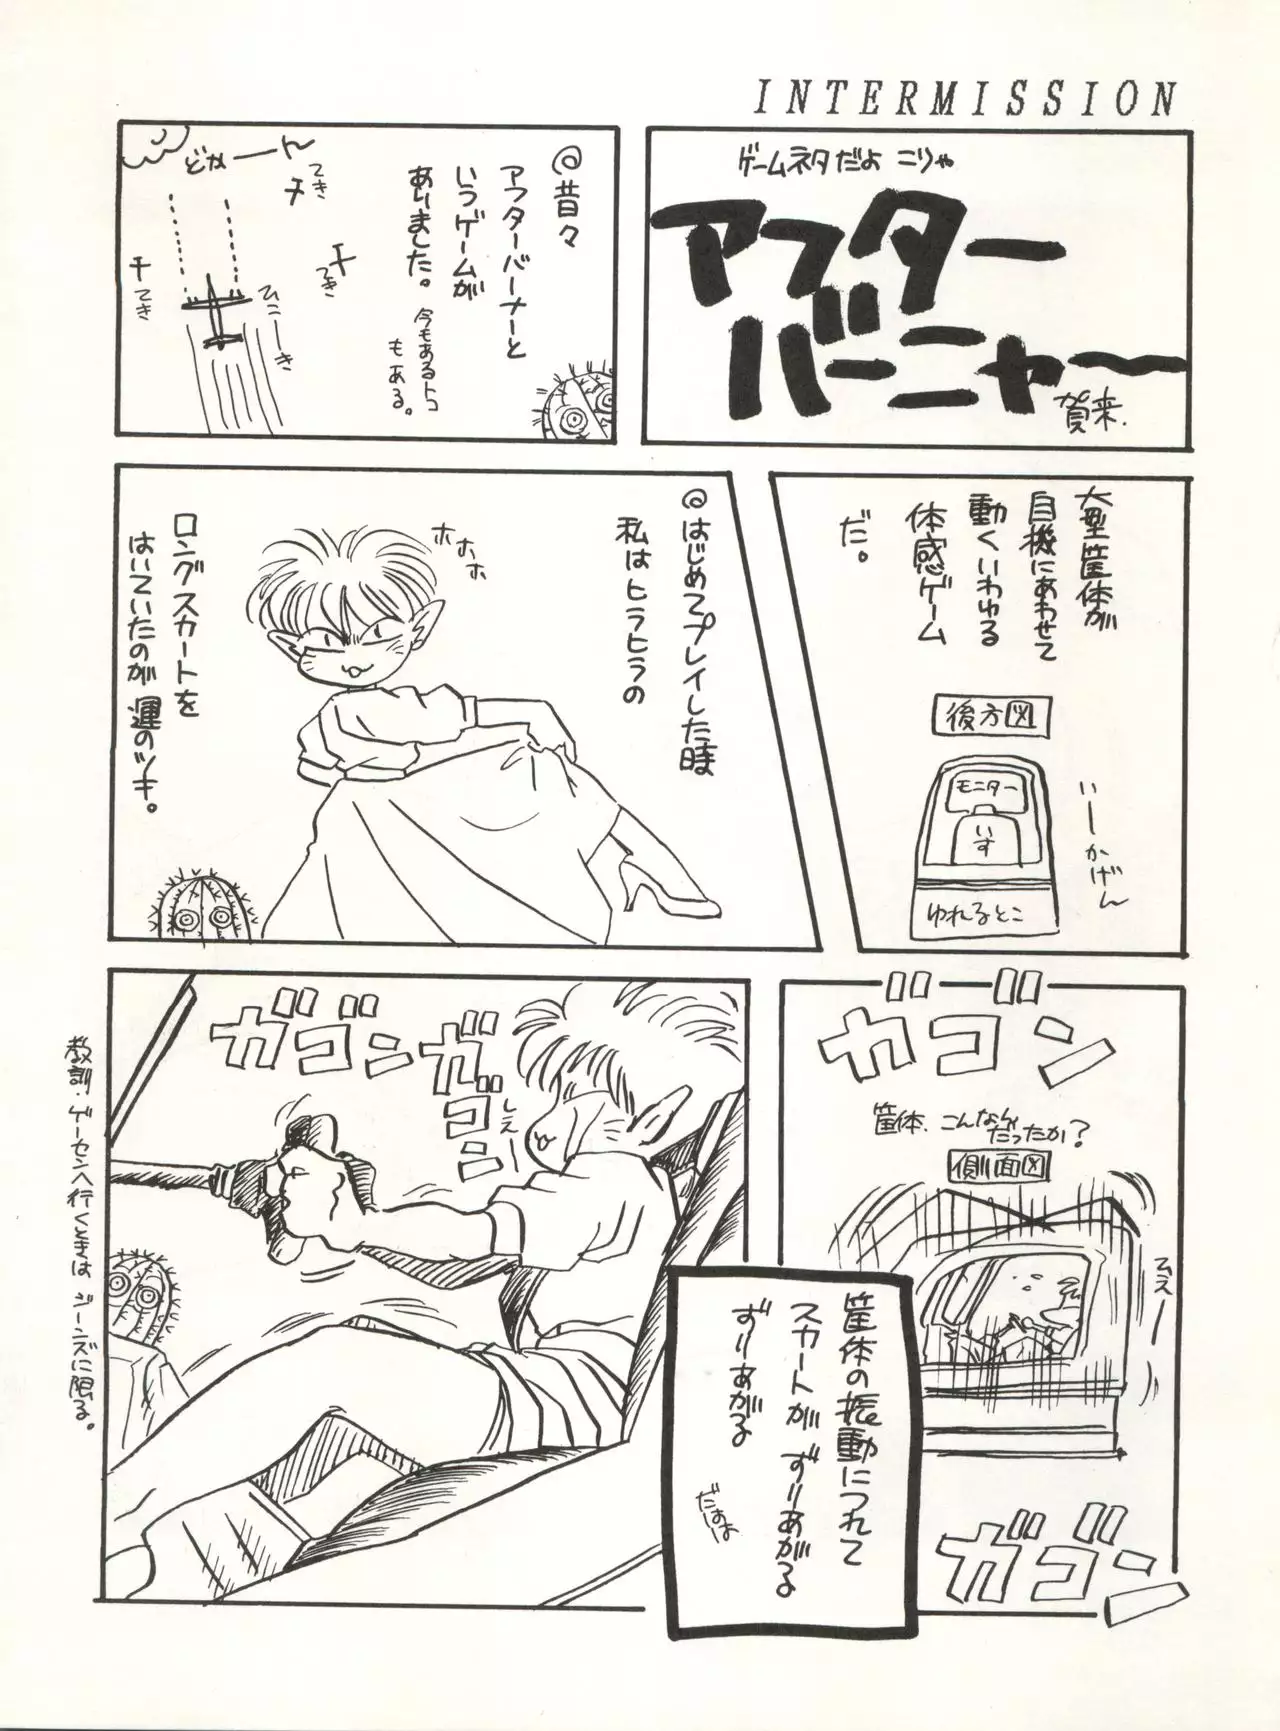 INTERMISSION
ゲームネタだよ こりゃ
アフター
バーニャ〜
賀来.
＠昔々
アフターバーナーと
いうゲームが
ありました。
今もあるトコ
もある。
どかーーん
てき
てき
てき
ひこーき
大型筐体が
自機にあわせて
動くいわゆる
体感ゲーム
だ。
後方図
モニター
いす
ゆれるとこ
いーかげん
＠はじめてプレイした時
私はヒラヒラの
ホホホ
ロングスカートを
はいていたのが運のツキ。
ガゴン
筐体、こんなんだったか？
側面図
ひえー
ガゴン
筐体の振動につれて
スカートが ずりあがる
ずりあがる
だはは
ガゴンガゴン
しえー
教訓・ゲーセンへ行くときは ジーンズに限る。